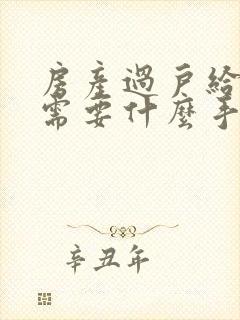 房產過戶給
需要什麼手
辛丑年